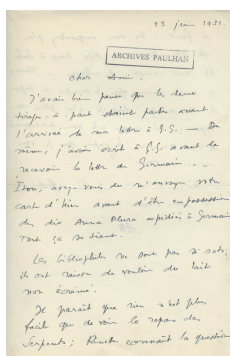 23 juin 1931.
ARCHIVES PAULHAN
cher Ami.
J'avais bien pensé que les deux
tirages à part étaient partis avant
l'arrivée de ma lettre à G.G. — De
même, j'avais écrit à G.G. avant de
recevoir la lettre de Germain ...
Donc, avez-vous du m'envoyer votre
carte d'hier avant d'être en possession
des dix Anna Livia expédiés à Germain
Tout ça se tient.
Les bibliophiles ne sont pas si sots,
ils ont raison de vouloir du lait
non écrémé.
Il paraît que rien n'est plus
facile que de voir le repas des
serpents; connaît la question